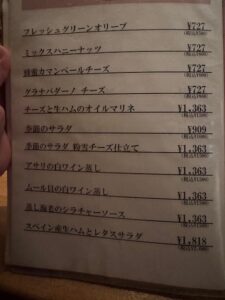 フレッシュグリーンオリーブ ¥727
(税込¥800)
ミックスハニーナッツ ¥727
(税込¥800)
蜂蜜カマンベールチーズ ¥727
(税込¥800)
グラナパダーノ チーズ ¥727
(税込¥800)
チーズと生ハムのオイルマリネ ¥1,363
(税込¥1,500)
季節のサラダ ¥909
(税込¥1,000)
季節のサラダ 粉雪チーズ仕立て ¥1,363
(税込¥1,500)
アサリの白ワイン蒸し ¥1,363
(税込¥1,500)
ムール貝の白ワイン蒸し ¥1,363
(税込¥1,500)
蒸し海老のシラチャーソース ¥1,363
(税込¥1,500)
スペイン産生ハムとレタスサラダ ¥1,818
(税込¥2,000)